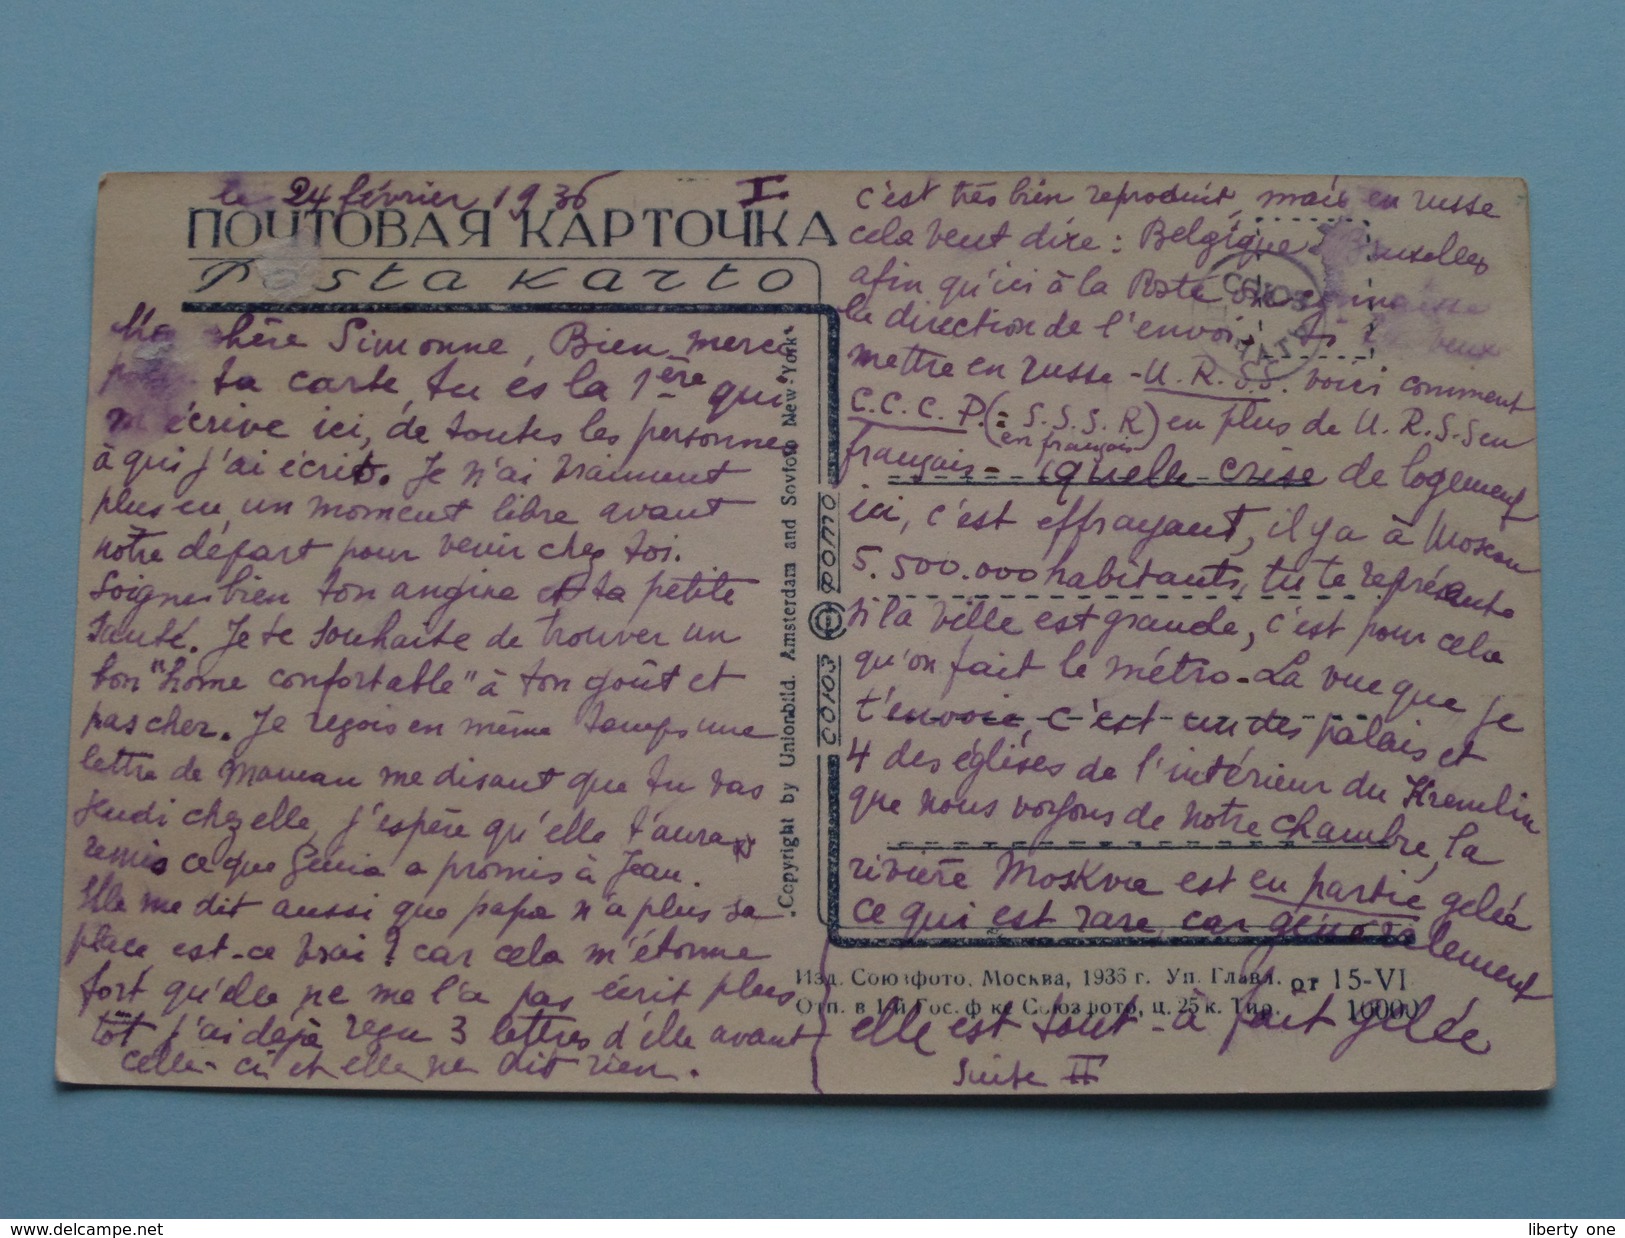 le 24 février 1936
I
ПОЧТОВАЯ КАРТОЧКА
Posta Karto
chère Simonne, Bien merci
ta carte, tu es la 1ère qui
m'écrive ici, de toutes les personnes
à qui j'ai écrit. Je n'ai vraiment
plus eu un moment libre avant
nôtre départ pour venir chez toi.
Soignes bien ton angine et ta petite
santé. Je te souhaite de trouver un
bon "home confortable" à ton goût et
pas cher. Je reçois en même temps une
lettre de Maman me disant que tu vas
jeudi chez elle, j'espère qu'elle t'aura
remis ce que Genia a promis à Jean.
Elle me dit aussi que papa n'a plus sa
place est-ce vrai? car cela m'étonne
fort qu'elle ne me l'a pas écrit plus
tôt j'ai déjà reçu 3 lettres d'elle avant
celle-ci et elle ne dit rien.
„Copyright by Unionbild. Amsterdam and Sovfoto New-York“
СОЮЗ ФОТО
c'est très bien reproduit, mais en russe
cela veut dire: Belgique Bruxelles
afin qu'ici à la Poste on connaisse
la direction de l'envoi. Si veux
mettre en russe - U.R.S.S. voici comment
C.C.C.P. (= S.S.S.R) en plus de U.R.S.S en
en français
français - quelle crise de logement
ici, c'est effrayant, il y a à Moscou
5.500.000 habitants, tu te représente
si la ville est grande, c'est pour cela
qu'on fait le métro - La vue que je
t'envoie, c'est un des palais et
4 des églises de l'intérieur du Kremlin
que nous voyons de notre chambre, la
rivière Moskva est en partie gelée
ce qui est rare, car généralement
Изд. Союзфото, Москва, 1936 г. Уп. Главл. от 15-VI
Отп. в 1-й Гос. ф-ке Союзфото, ц. 25 к. Тир. 10000
elle est tout-à fait gelée
Suite II
liberty one
www.delcampe.net